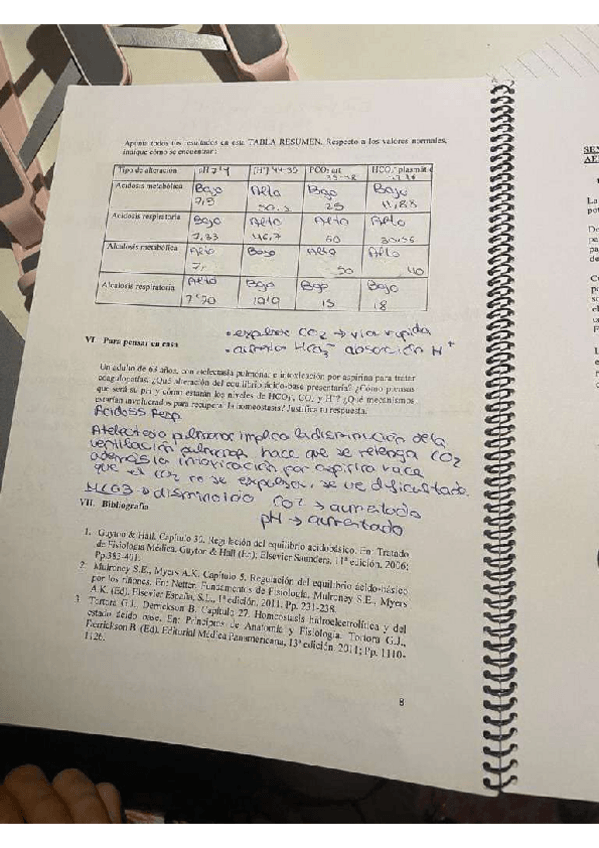 Apunte todos los resultados en esta TABLA RESUMEN. Respecto a los valores normales,
indique cómo se encuentran:
Tipo de alteración pH 7'4 [H+] 44-35 PCO2 art HCO3- plasmát
Acidosis metabólica Bajo Alto Bajo Bajo
25 11,88
Acidosis respiratoria Bajo Alto Alto Alto
7,33 46,7 50
Alcalosis metabólica Alto Bajo Alto Alto
50 40
Alcalosis respiratoria Alto Bajo Bajo Bajo
7'70 19'9 15 18
• expulsar CO2 → vía rápida
HCO3- absorción H+
VI. Para pensar en casa
Un adulto de 68 años, con atelectasia pulmonar e intoxicación por aspirina para tratar
¿Qué alteración del equilibrio ácido-base presentaría? ¿Cómo piensas
que será su pH y cómo estarán los niveles de HCO3-, CO2 y H+? ¿Qué mecanismos
estarían involucrados para recuperar la homeostasis? Justifica tu respuesta.
Acidosis Resp.
Atelectasia pulmonar implica la disminución de la
ventilación pulmonar, hace que se retenga CO2
además la intoxicación por aspirina hace
que el CO2 no se expulsa, se ve dificultado.
HCO3 → disminuido CO2 → aumentado
pH → aumentado
VII. Bibliografía
1. Guyton & Hall. Capítulo 30. Regulación del equilibrio acidobásico. En: Tratado
de Fisiología Médica. Guyton & Hall (Ed); Elsevier Saunders. 11ª edición, 2006;
Pp.383-401.
2. Mulroney S.E., Myers A.K. Capítulo 5. Regulación del equilibrio ácido-básico
por los riñones. En: Netter. Fundamentos de Fisiología. Mulroney S.E., Myers
A.K. (Ed). Elsevier España, S.L., 1ª edición, 2011. Pp. 231-238.
3. Tortora G.J., Derrickson B. Capítulo 27. Homeostasis hidroelectrolítica y del
estado ácido base. En: Principios de Anatomía y Fisiología. Tortora G.J.,
Derrickson B. (Ed). Editorial Médica Panamericana, 13ª edición. 2011; Pp. 1110-
1126.
8